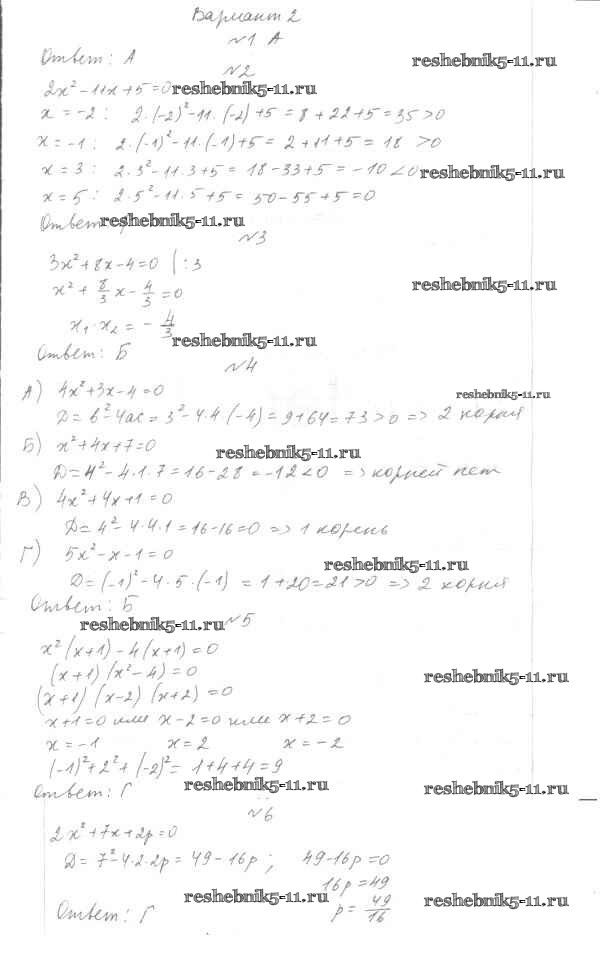 Вариант 2
№1 А
Ответ: А reshebnik5-11.ru
№2
2x² - 11x + 5 = 0 reshebnik5-11.ru
x = -2 : 2·(-2)² - 11·(-2) + 5 = 8 + 22 + 5 = 35 > 0
x = -1 : 2·(-1)² - 11·(-1) + 5 = 2 + 11 + 5 = 18 > 0
x = 3 : 2·3² - 11·3 + 5 = 18 - 33 + 5 = -10 < 0 reshebnik5-11.ru
x = 5 : 2·5² - 11·5 + 5 = 50 - 55 + 5 = 0
Ответ reshebnik5-11.ru
№3
3x² + 8x - 4 = 0 | :3
x² + 8/3 x - 4/3 = 0 reshebnik5-11.ru
x₁·x₂ = - 4/3 reshebnik5-11.ru
Ответ: Б
№4
А) 4x² + 3x - 4 = 0 reshebnik5-11.ru
Д = b² - 4ac = 3² - 4·4(-4) = 9 + 64 = 73 > 0 => 2 корня
Б) x² + 4x + 7 = 0 reshebnik5-11.ru
Д = 4² - 4·1·7 = 16 - 28 = -12 < 0 => корней нет
В) 4x² + 4x + 1 = 0
Д = 4² - 4·4·1 = 16 - 16 = 0 => 1 корень
Г) 5x² - x - 1 = 0 reshebnik5-11.ru
Д = (-1)² - 4·5·(-1) = 1 + 20 = 21 > 0 => 2 корня
Ответ: Б
reshebnik5-11.ru №5
x²(x+1) - 4(x+1) = 0
(x+1)(x²-4) = 0 reshebnik5-11.ru
(x+1)(x-2)(x+2) = 0
x+1=0 или x-2=0 или x+2=0
x = -1 x = 2 x = -2
(-1)² + 2² + (-2)² = 1 + 4 + 4 = 9
Ответ: Г reshebnik5-11.ru reshebnik5-11.ru
№6
2x² + 7x + 2p = 0
Д = 7² - 4·2·2p = 49 - 16p ; 49 - 16p = 0
16p = 49
reshebnik5-11.ru reshebnik5-11.ru
Ответ: Г p = 49/16